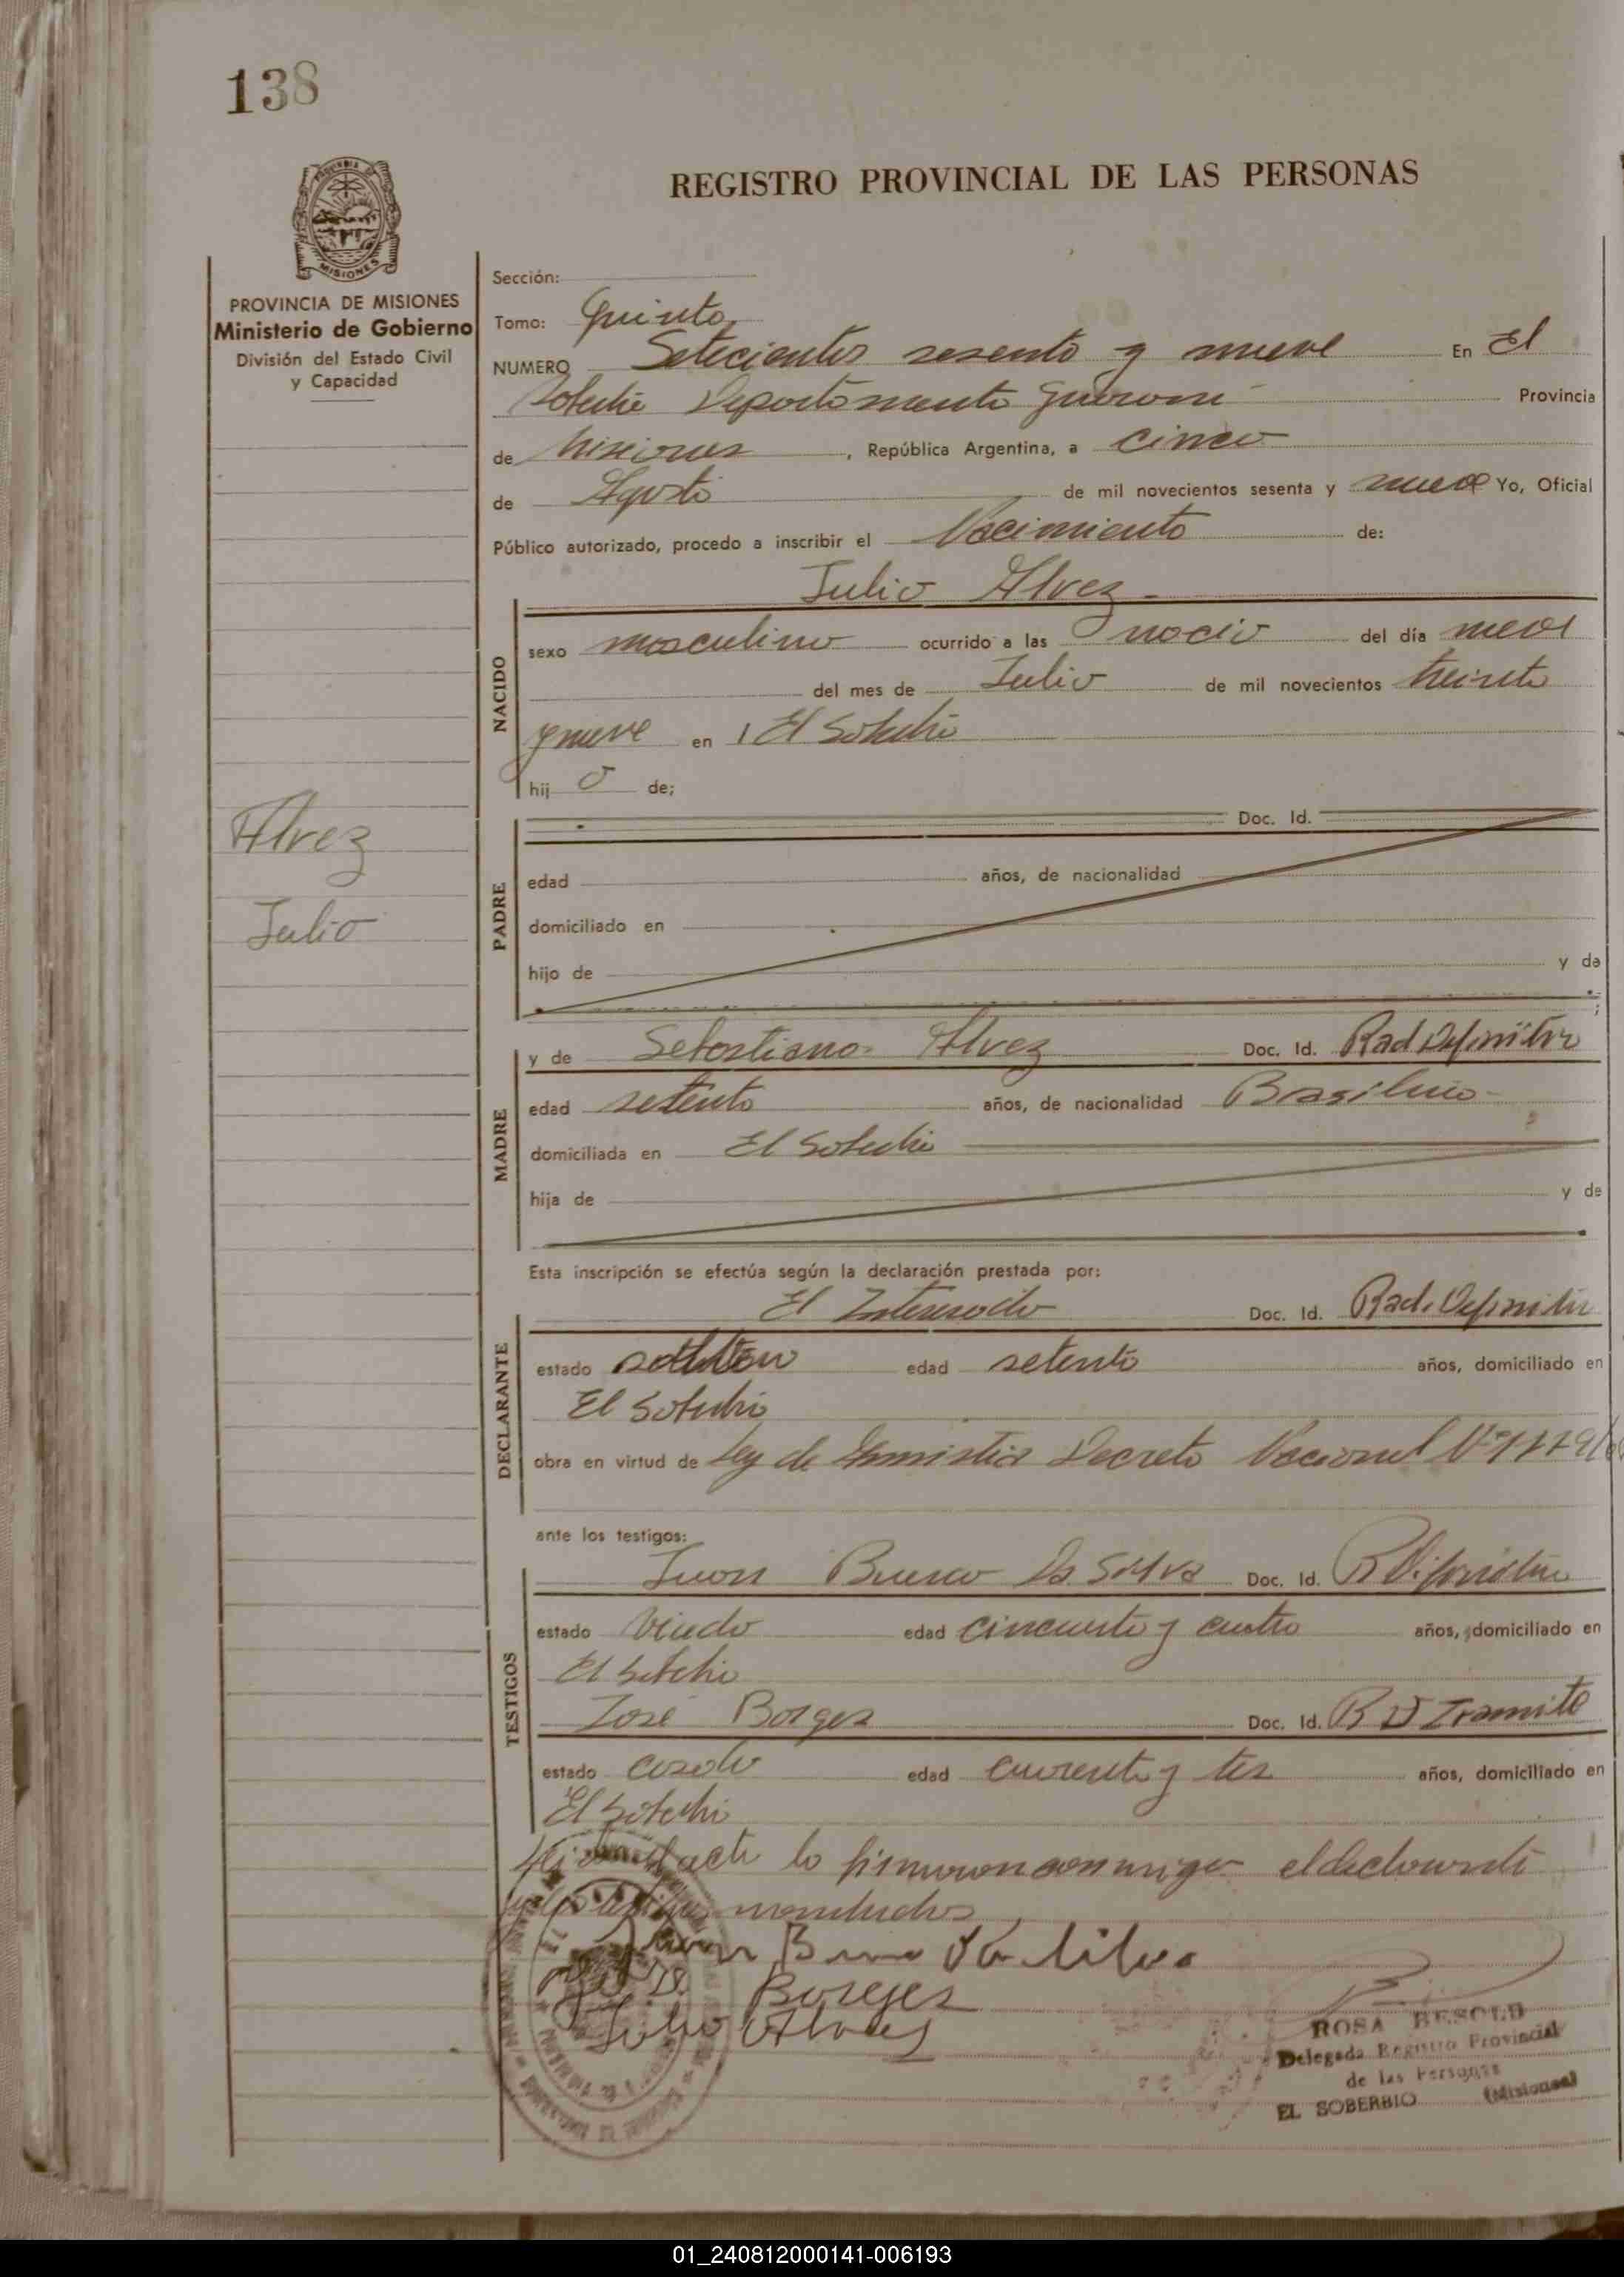 138
REGISTRO PROVINCIAL DE LAS PERSONAS
PROVINCIA DE MISIONES
Ministerio de Gobierno
División del Estado Civil
y Capacidad
Sección:
Tomo: Quinto
NUMERO Setecientos sesenta y nueve En El
Departamento Guarani Provincia
de Misiones, República Argentina, a cinco
de Agosto de mil novecientos sesenta y nueve Yo, Oficial
Público autorizado, procedo a inscribir el Nacimiento de:
Julio Alvez
NACIDO
sexo masculino ocurrido a las nacio del día nueve
del mes de Julio de mil novecientos treinta
y nueve en El
hij o de;
Alvez
Julio
PADRE
Doc. Id.
edad años, de nacionalidad
domiciliado en
hijo de y de
MADRE
y de Sebastiana Alvez Doc. Id. Rad Definitiva
edad setenta años, de nacionalidad
domiciliada en El
hija de y de
Esta inscripción se efectúa según la declaración prestada por:
El Interesado Doc. Id. Rad. Definitiva
DECLARANTE
estado edad setenta años, domiciliado en
El
obra en virtud de Ley de Amnistia Decreto Nacional Nº
ante los testigos:
TESTIGOS
Juan Bueno Da Silva Doc. Id.
estado Viudo edad cincuenta y cuatro años, domiciliado en
El
José Borges Doc. Id. R D Tramite
estado casado edad cuarenta y tres años, domiciliado en
El
acta lo firmaron conmigo el declarante
Juan Bueno Da Silva
Borges
Julio Alves
ROSA BESOLD
Delegada Registro Provincial
de las Personas
EL SOBERBIO (Misiones)
01_240812000141-006193